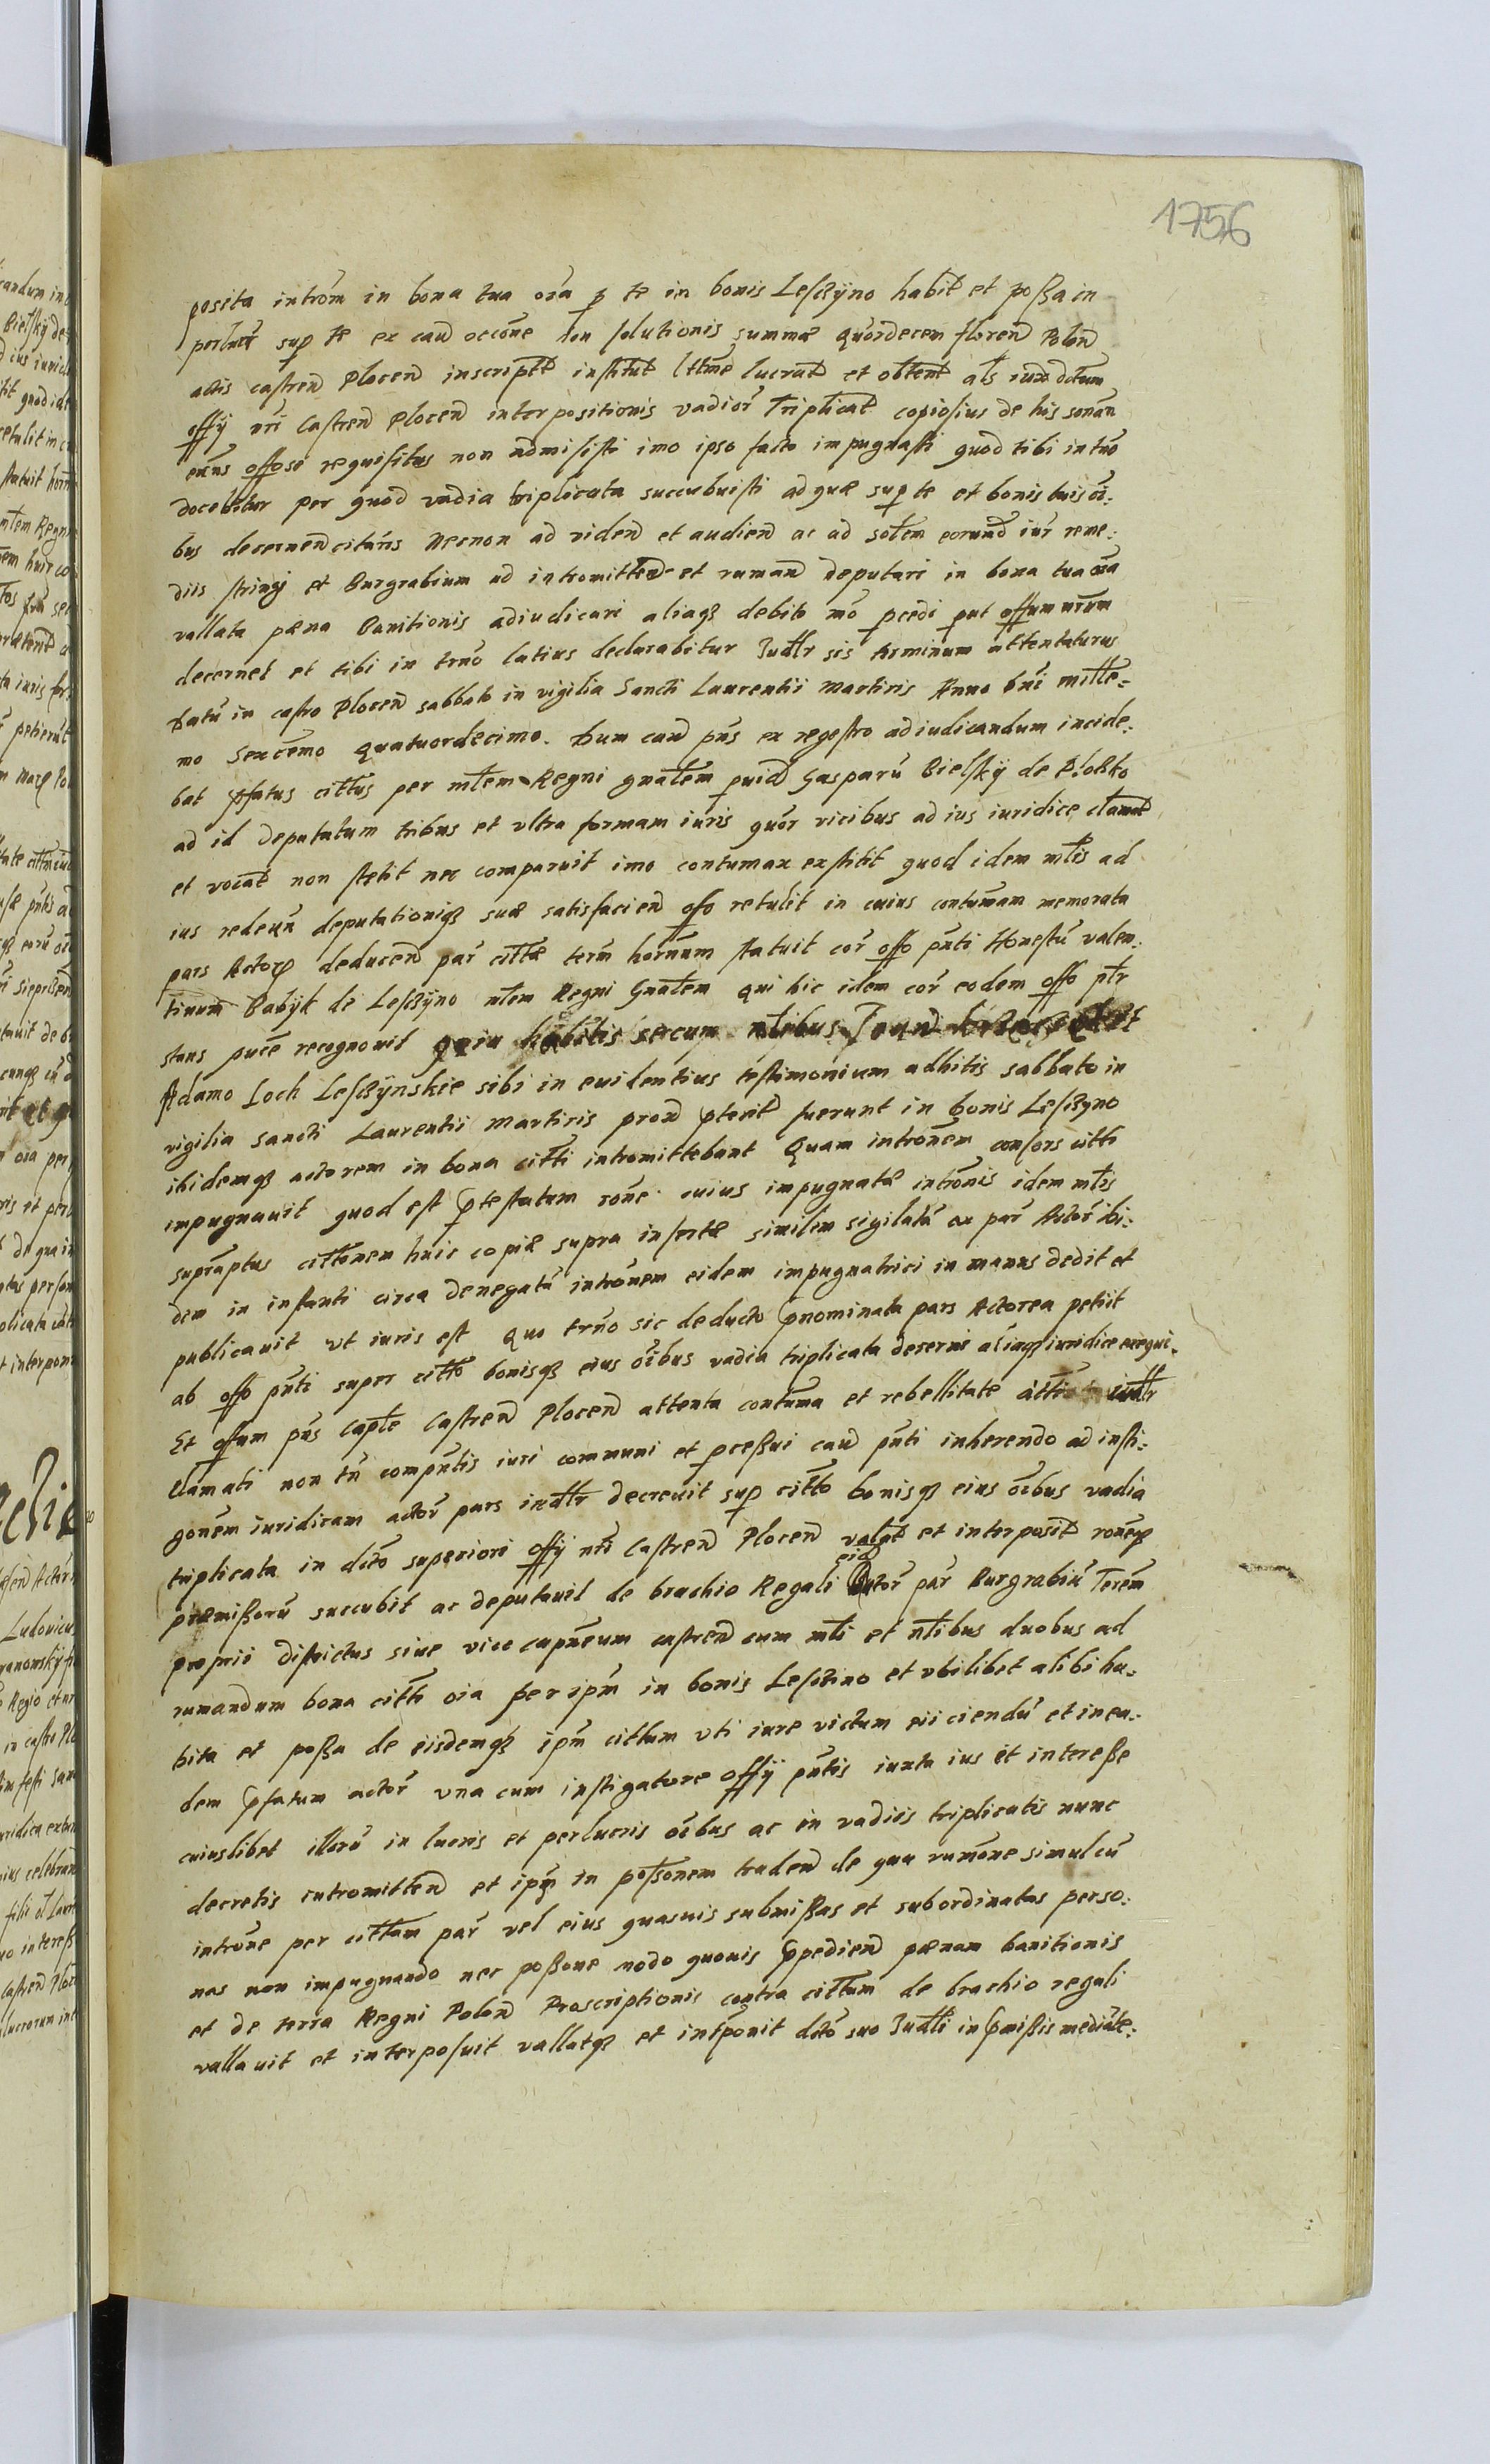 1756
posita introm in bona tua oīa p te in bonis Leſczÿno habit et poßa in
perlucr sup te ex cau occōne non solutionis summæ quordecem floren Polon
actis castren Plocen inscript institut lttme lucrat et obtent als iuxa dctum
offÿ nri Castren Plocen interpositionis vadior Triplicat copiosius de his sonan
offose requisitus non admisisti imo ipso facto impugnasti quod tibi in tno
docebitur per quod vadia triplicata succubuisti ad quæ sup te et bonis tuis oi:
bus decernen citaris Necnon ad viden et audien ac ad soltem eorund iur reme:
diis stringi et Burgrabium ad intromitten et ruman deputari in bona tua oia
vallata pæna Banitionis adiudicari aliaqȝ debito mo pcedi put offum nrum
decernet et tibi in trno latius declarabitur Iudtlr sis terminum attentaturus
Datu in castro Plocen sabbato in vigilia Sancti Laurentii Martiris Anno Dni mille=
mo Sexcemo quatuordecimo. Dum cau pns ex regestro ad iudicandum incide:
bat pfatus cittus per mtem Regni gnalem puid Gasparu Bielskÿ de Plocko
ad id deputatum tribus et ultra formam iuris quor vicibus ad ius iuridice clamat
et vocat non stetit nec comparuit imo contumax exstitit quod idem mtis ad
ius redeun deputationiqȝ suæ satisfacien offo retulit in cuius contumam memorata
pars Actor deducen par cittæ term hornum statuit cor offo pnti Honestu valen:
tinum Babÿk de Leſczÿno mtem Regni Gnalem qui hic idem cor eodem offo ptr
stans puce recognouit quia habitis secum ntibus Joan et
Adamo Loch Leſczÿnskie sibi in euidentius testimonium adhitis sabbato in
vigilia sancti Laurentii Martiris prox pterit fuerunt in bonis Leſczyno
ibidemqȝ actorem in bona citti intromittebant Quam intronem consors citti
impugnauit quod est ptestatum rone cuius impugnatæ intronis idem mtis
supraptus cittonem huic copiæ supra insertæ similem sigilata ex par Actor ibi:
dem in instanti circa denegata intronem eidem impugnatrici in manus dedit et
publicauit vt iuris est Quo trno sic deducto pnominata pars Actorea petiit
ab offo pnti super citto bonisqȝ eius oibus vadia triplicata decerni aliaqȝ iuridice exequi.
Et offum pns Capte Castren Plocen attenta contuma et rebellitate citti iudlr
clamati non tn computis iuri communi et pceßui cau pnti inherendo ad insti:
gonem iuridicam actor pars iudtlr decreuit sup citto bonisqȝ eius oibus vadia
triplicata in dcto superiori offÿ nri Castren Plocen valat et interposit rone
præmißoru succubit ac deputauit de brachio Regali eid Actor par Burgrabiu Terem
proprii districtus siue vice capneum castren cum mti et ntibus duobus ad
rumandum bona citti oia per ipm in bonis Leſczino et vbilibet alibi ha:
bita et poßa de eisdemqȝ ipm cittum vti iure victum eiiciendu et in ea:
dem pfatum actor una cum instigatore offÿ pntis iuxta ius et intereße
cuiuslibet illoru in lucris et perlucris oibus ac in vadiis triplicatis nunc
decretis intromitten et ipm in poßonem traden de qua rumone simulcu
introne per cittam par vel eius quasuis submißas et subordinatas perso:
nas non impugnando nec poßone modo quouis ppedien pænam banitionis
et de terra Regni Polon Proscriptionis contra cittum de brachio regali
vallauit et interposuit vallatqȝ et intponit dcto suo Iudtli in pmißis mediate: